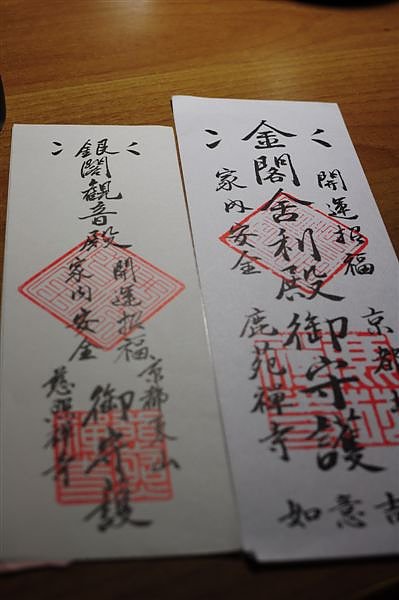 金閣舍利殿御守護
開運招福
家內安全
京都北
鹿苑禅寺
如意吉
銀閣觀音殿
御守護
開運招福
家内安全
京都東山
慈照禅寺